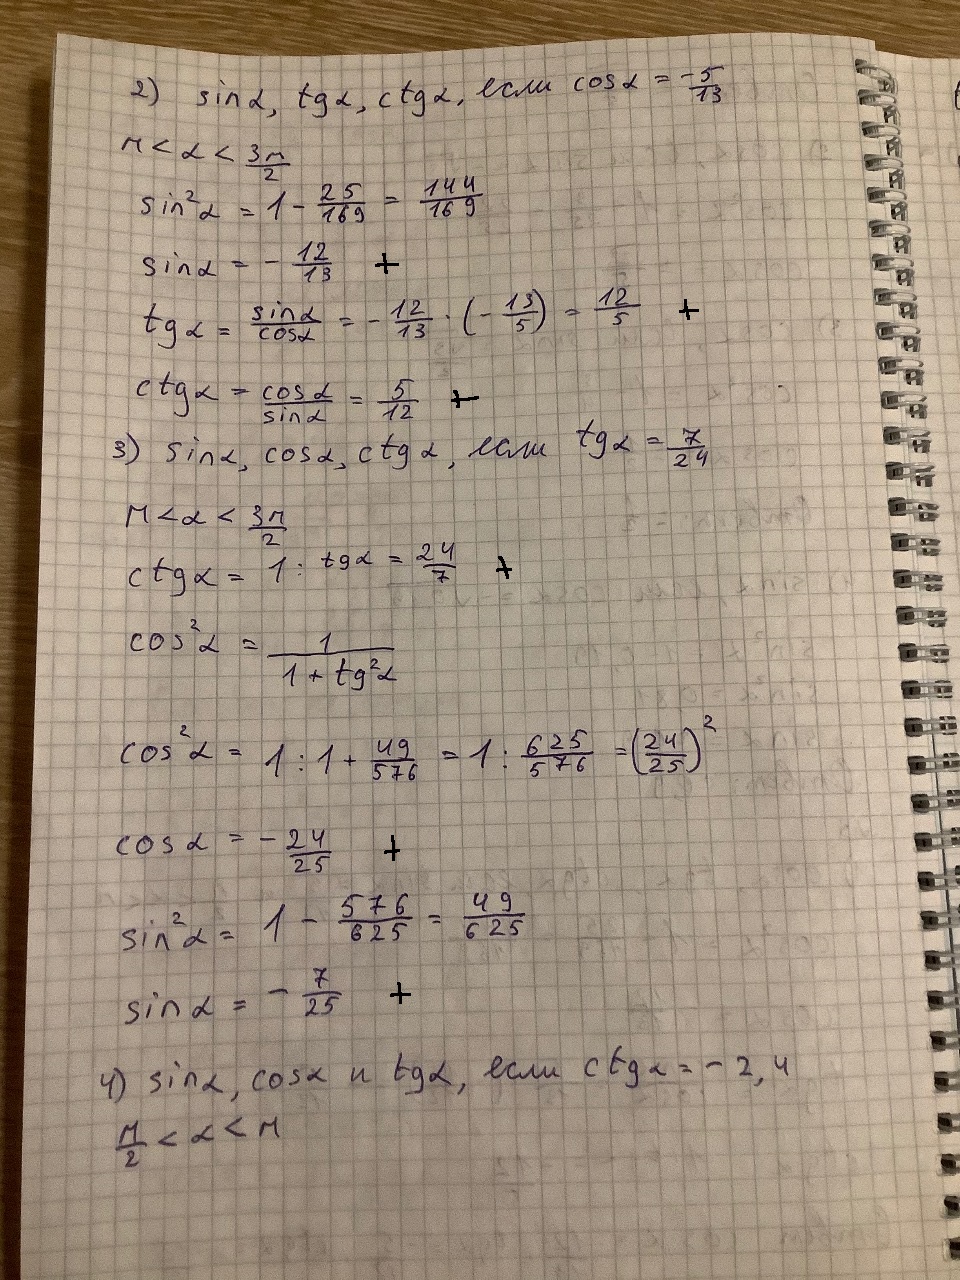 2) sinα, tgα, ctgα, если cosα = -5/13
π < α < 3π/2
sin²α = 1 - 25/169 = 144/169
sinα = - 12/13 +
tgα = sinα/cosα = - 12/13 · (- 13/5) = 12/5 +
ctgα = cosα/sinα = 5/12 +
3) sinα, cosα, ctgα, если tgα = 7/24
π < α < 3π/2
ctgα = 1 : tgα = 24/7 +
cos²α = 1/(1 + tg²α)
cos²α = 1 : 1 + 49/576 = 1 : 625/576 = (24/25)²
cosα = - 24/25 +
sin²α = 1 - 576/625 = 49/625
sinα = - 7/25 +
4) sinα, cosα и tgα, если ctgα = - 2,4
π/2 < α < π